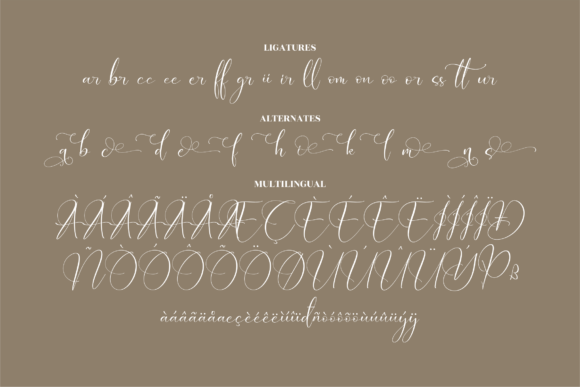 LIGATURES
ar br cc ee er ff gr ii ir ll om on oo or ss tt ur
ALTERNATES
a b d e f h k l m n s
MULTILINGUAL
ÀÁÂÃÄÅÆÇÈÉÊËÌÍÎÏÐ
ÑÒÓÔÕÖØÙÚÛÜÝÞß
àáâãäåæçèéêëìíîïðñòóôõöùúûüýÿ